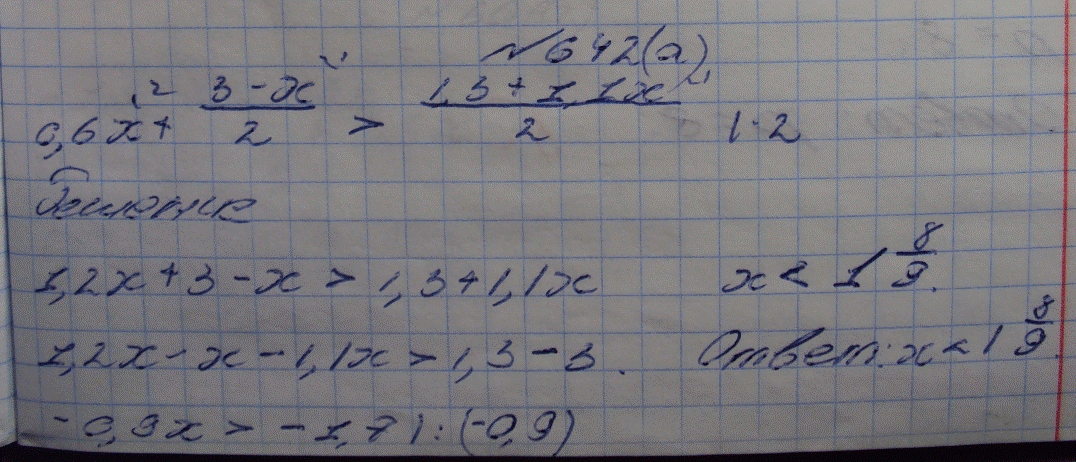 №642(а)
0,6x + (3-x)/2 > (1,3+1,1x)/2 | ·2
Решение
1,2x+3-x > 1,3+1,1x
1,2x-x-1,1x > 1,3-3.
-0,9x > -1,7 |:(-0,9)
x < 1 8/9.
Ответ: x < 1 8/9.